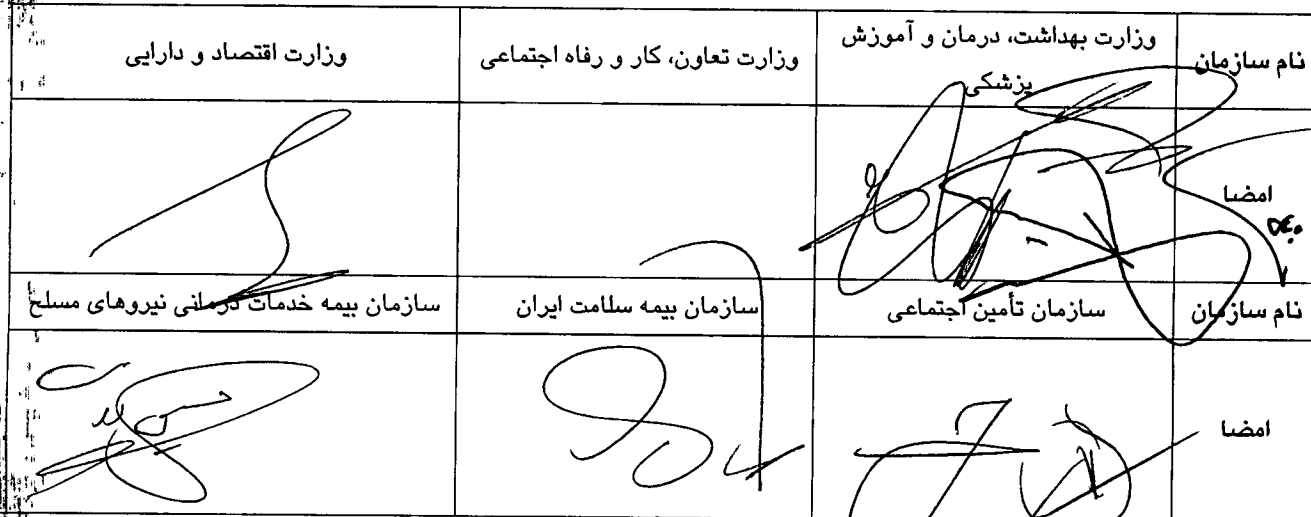 نام سازمان
وزارت بهداشت، درمان و آموزش
پزشکی
وزارت تعاون، کار و رفاه اجتماعی
وزارت اقتصاد و دارایی
امضا
نام سازمان
سازمان تأمین اجتماعی
سازمان بیمه سلامت ایران
سازمان بیمه خدمات درمانی نیروهای مسلح
امضا